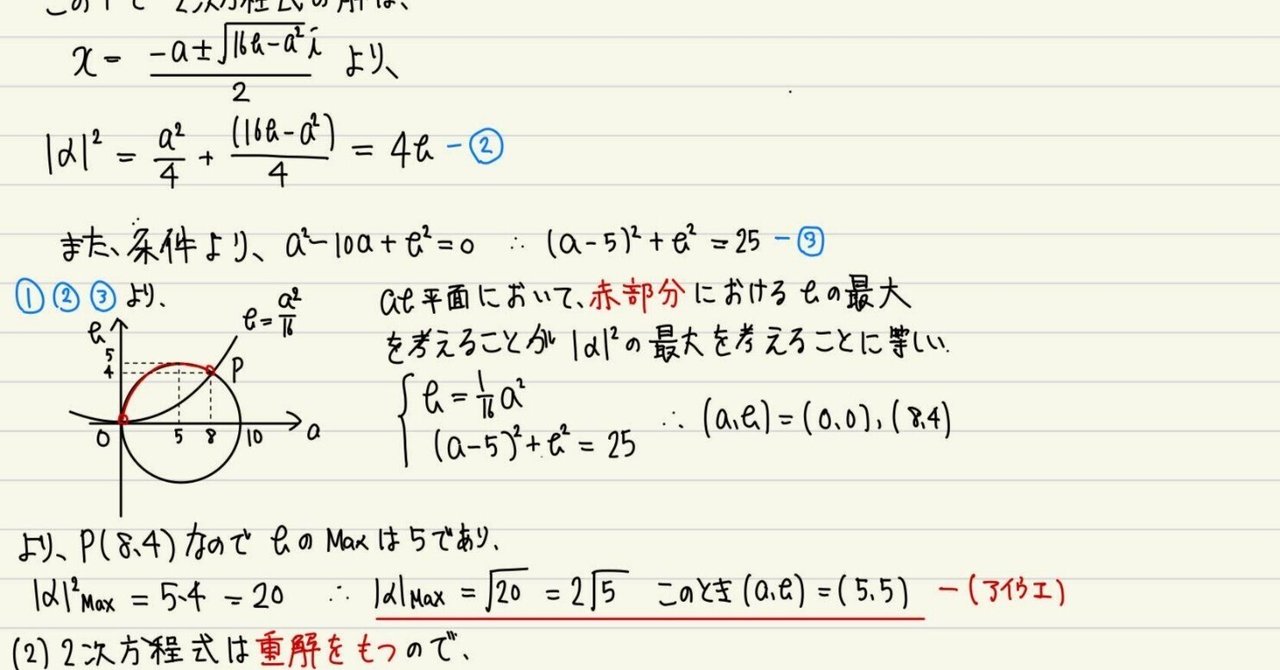 この下で 2次方程式の解は、
x = (-a±√(16b-a²) i)/2 より、
|α|² = a²/4 + (16b-a²)/4 = 4b -②
また、条件より、a²-10a+b²=0 ∴ (a-5)²+b²=25 -③
①②③より、
ab平面において、赤部分におけるbの最大
を考えることが |α|²の最大を考えることに等しい.
b
5
4
b=a²/16
P
O 5 8 10 a
{ b=1/16 a²
(a-5)²+b²=25
∴ (a,b)=(0,0),(8,4)
より、P(8,4)なのでbのMaxは5であり、
|α|²Max = 5·4 = 20 ∴ |α|Max = √20 = 2√5 このとき(a,b)=(5,5) -(アイウエ)
(2) 2次方程式は重解をもつので、